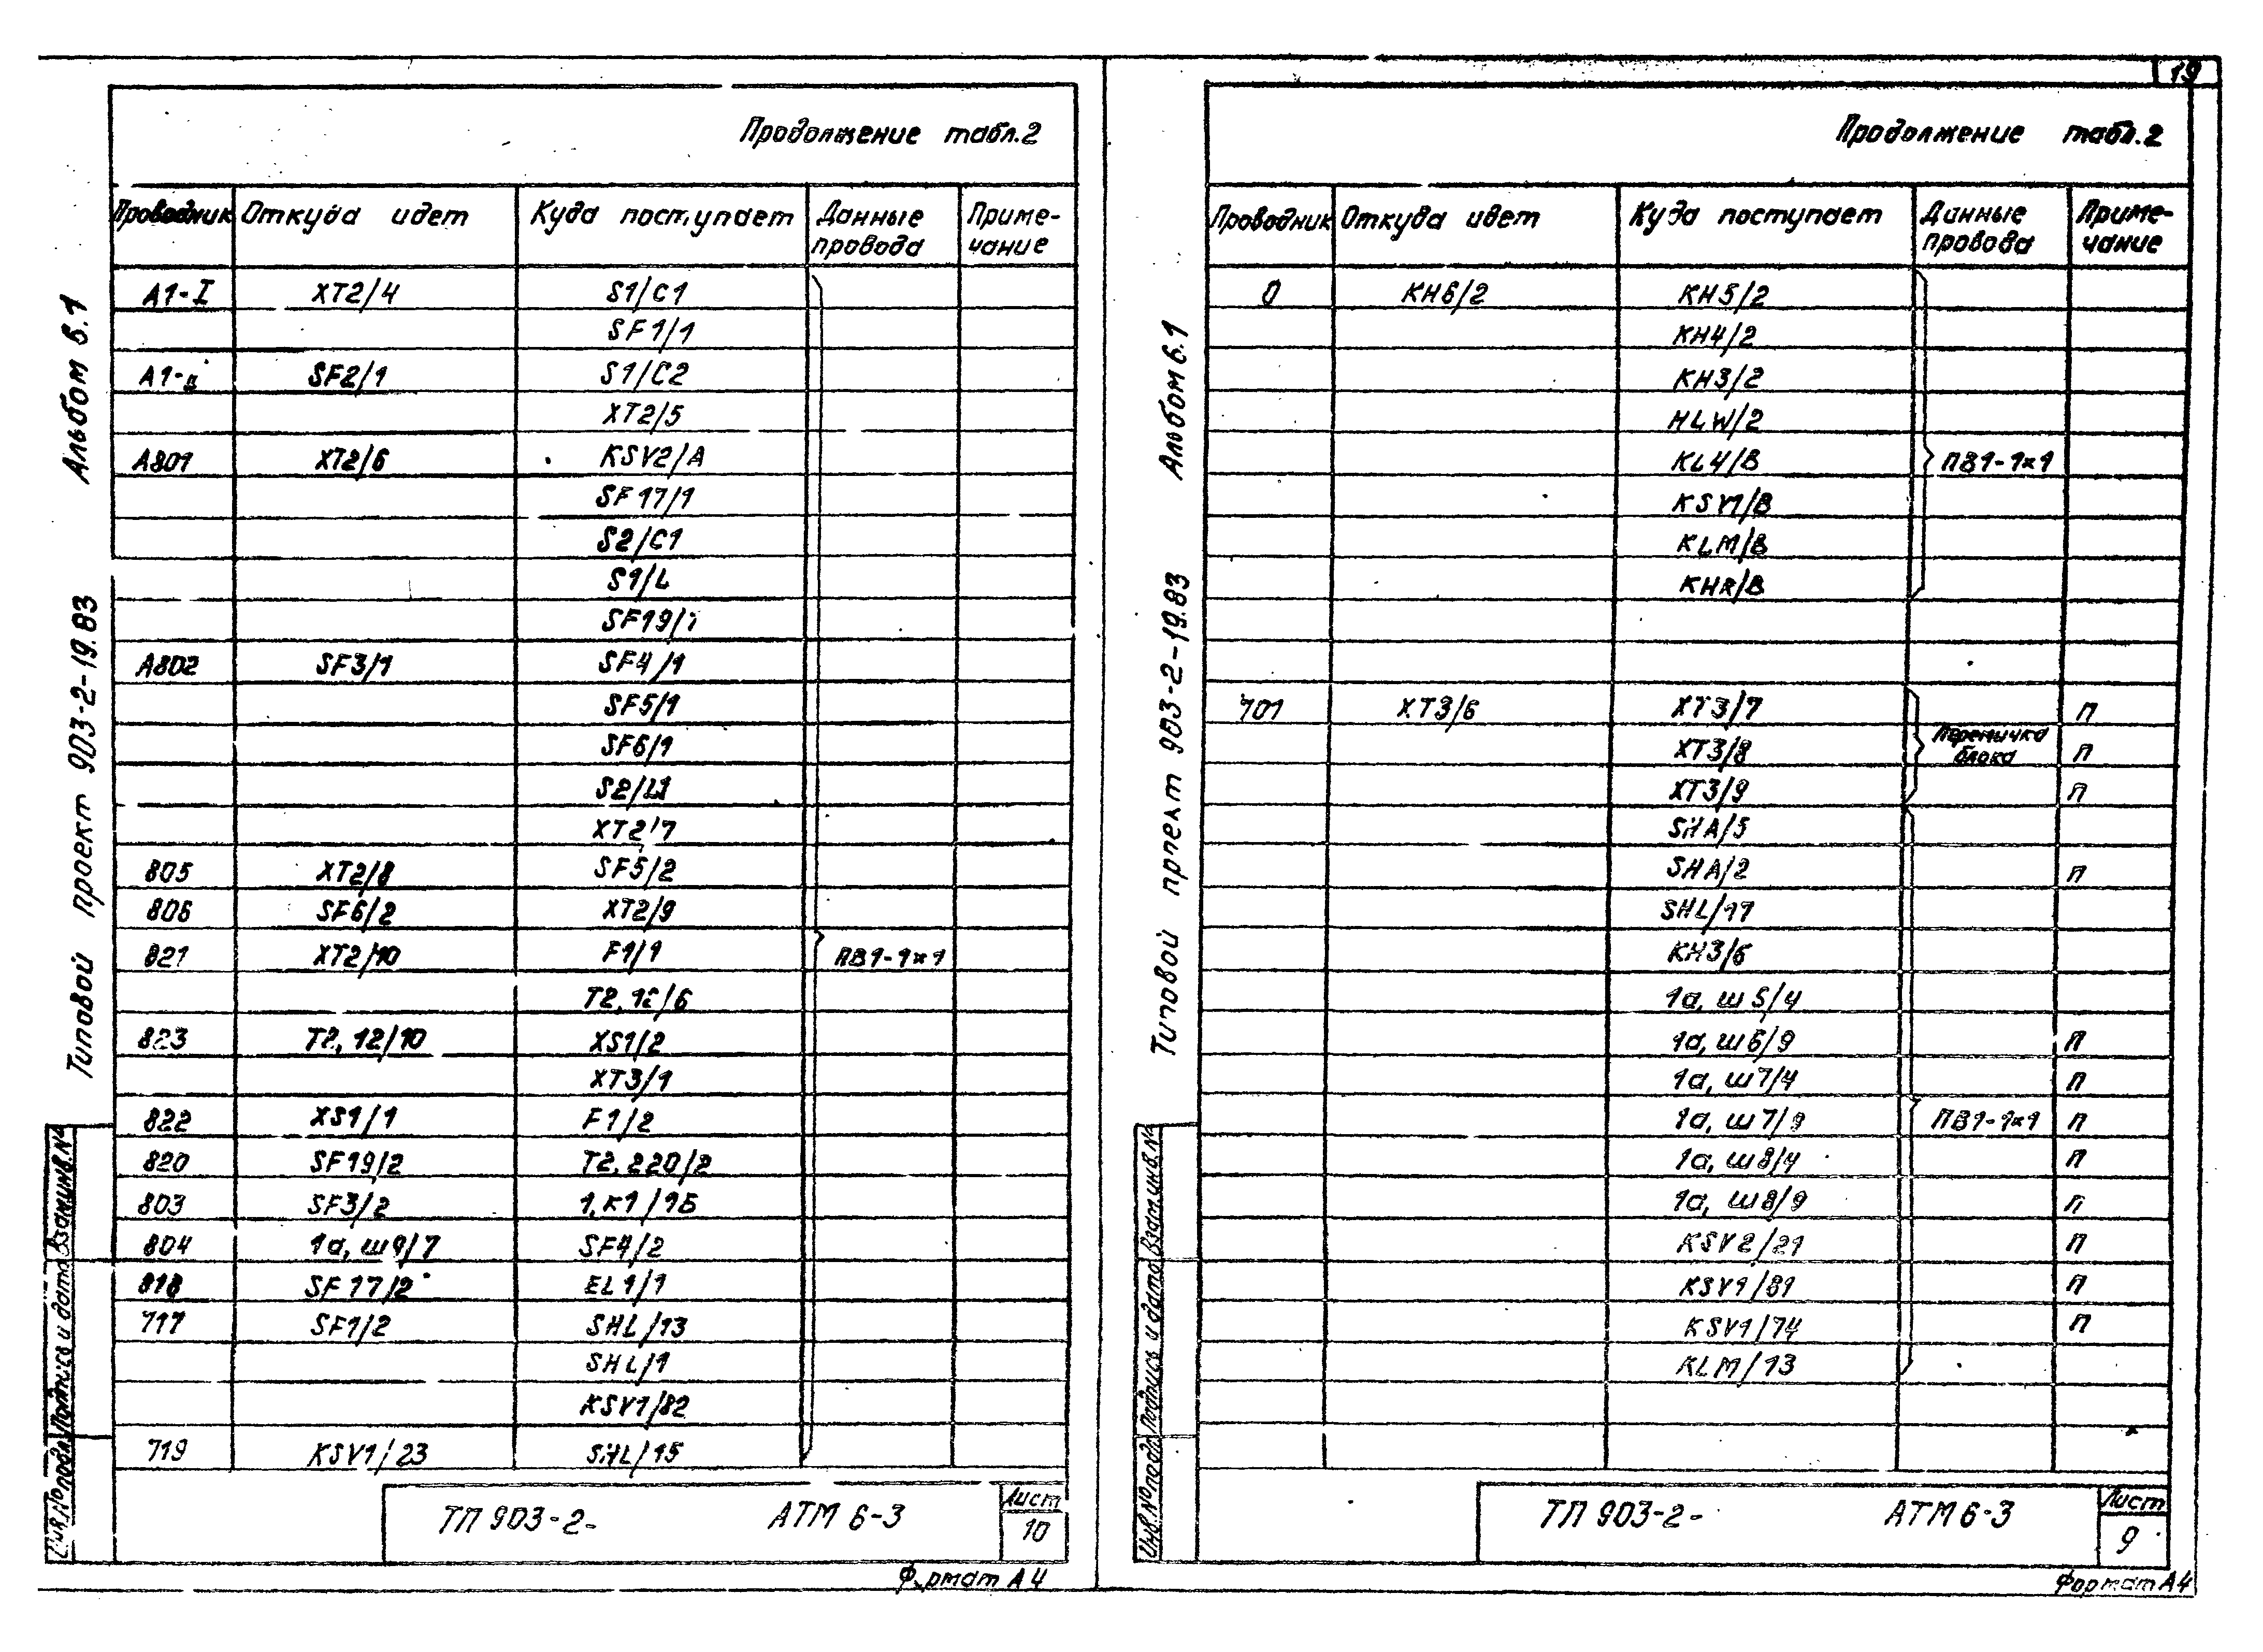 19
Альбом 6.1
Типовой проект 903-2-19.83
Продолжение табл.2
Проводник Откуда идет Куда поступает Данные провода Приме-чание
А1-I XT2/4 S1/C1
SF1/1
А1-II SF2/1 S1/C2
XT2/5
А801 XT2/6 KSV2/A
SF17/1
S2/C1
S1/L
SF19/1
А802 SF3/1 SF4/1
SF5/1
SF6/1
S2/L1
XT2/7
805 XT2/8 SF5/2
806 SF6/2 XT2/9
821 XT2/10 F1/1 ПВ1-1×1
T2, 12/6
823 T2, 12/10 XS1/2
XT3/1
822 XS1/1 F1/2
820 SF19/2 T2, 220/2
803 SF3/2 1, К1/1Б
804 1а, ш9/7 SF4/2
818 SF17/2 EL1/1
717 SF1/2 SHL/13
SHL/1
KSV1/82
719 KSV1/23 SHL/15
Инв.№подл. Подпись и дата Взам.инв.№
ТП 903-2- АТМ 6-3 Лист
10
Формат А4
Альбом 6.1
Типовой прпект 903-2-19.83
Продолжение табл.2
Проводник Откуда идет Куда поступает Данные провода Приме-чание
0 KH6/2 KH5/2
KH4/2
KH3/2
HLW/2
KL4/B ПВ1-1×1
KSV1/B
KLM/B
KHR/B
701 XT3/6 XT3/7 П
XT3/8 Перемычка блока П
XT3/9 П
SHA/5
SHA/2 П
SHL/17
KH3/6
1а, ш5/4
1а, ш6/9 П
1а, ш7/4 П
1а, ш7/9 ПВ1-1×1 П
1а, ш8/4 П
1а, ш8/9 П
KSV2/21 П
KSV1/81 П
KSV1/74 П
KLM/13
Инв.№подл. Подпись и дата Взам.инв.№
ТП 903-2- АТМ 6-3 Лист
9
Формат А4